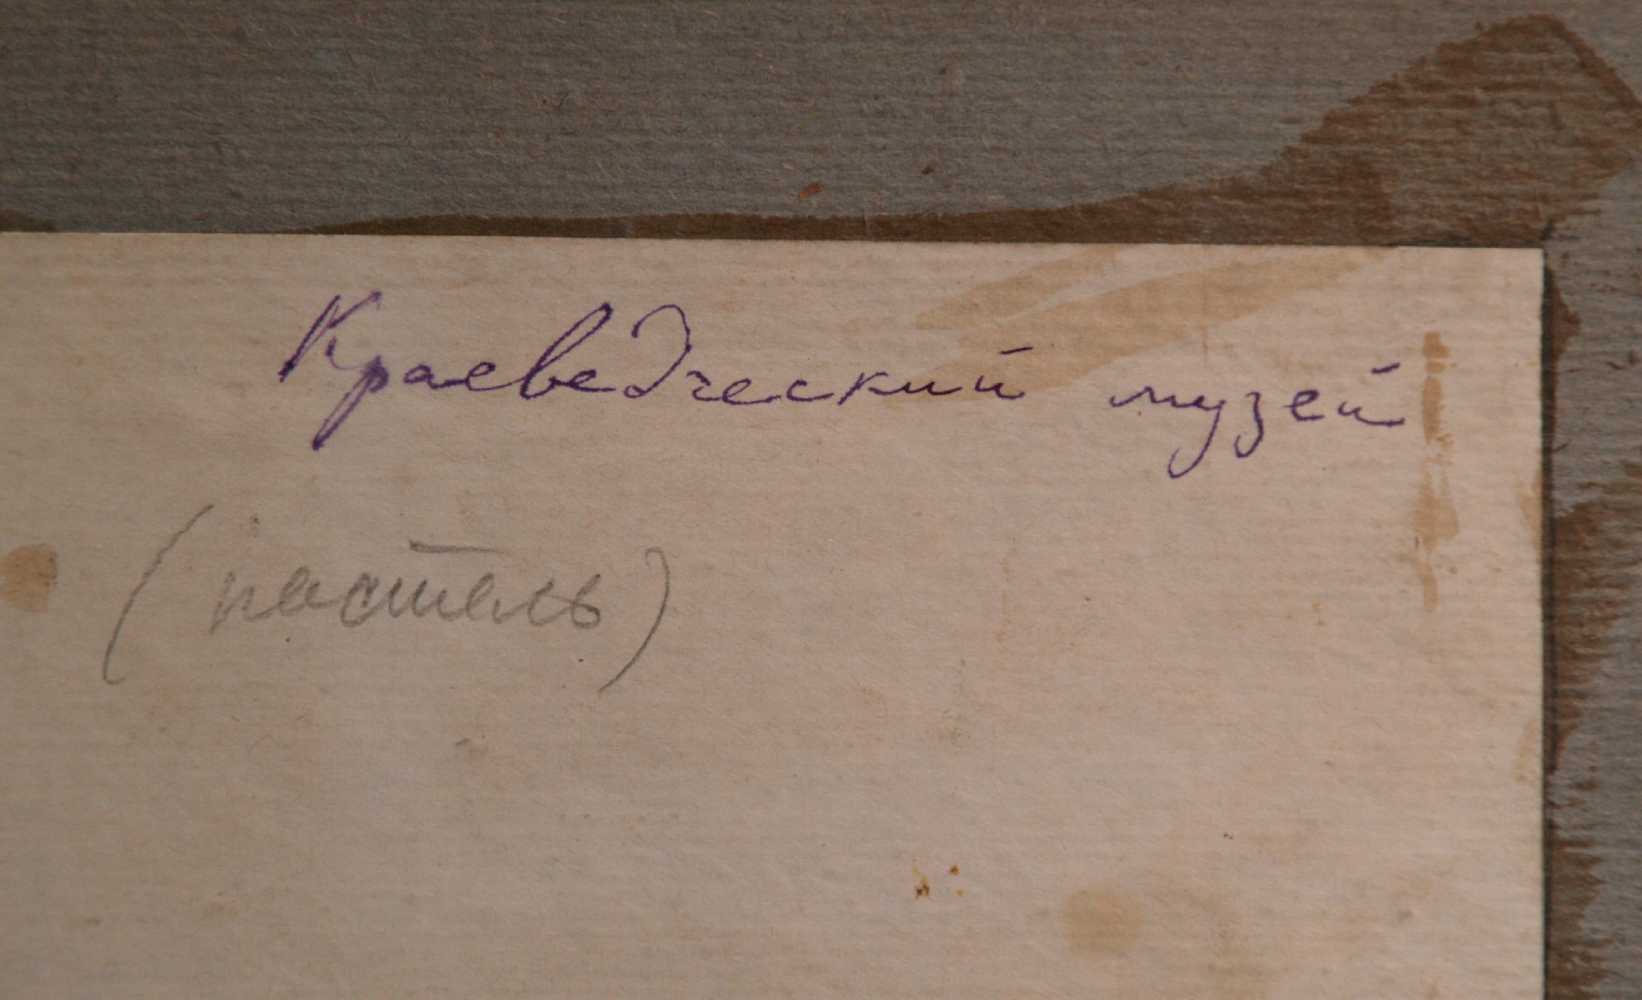 Краеведческий музей
(пастель)